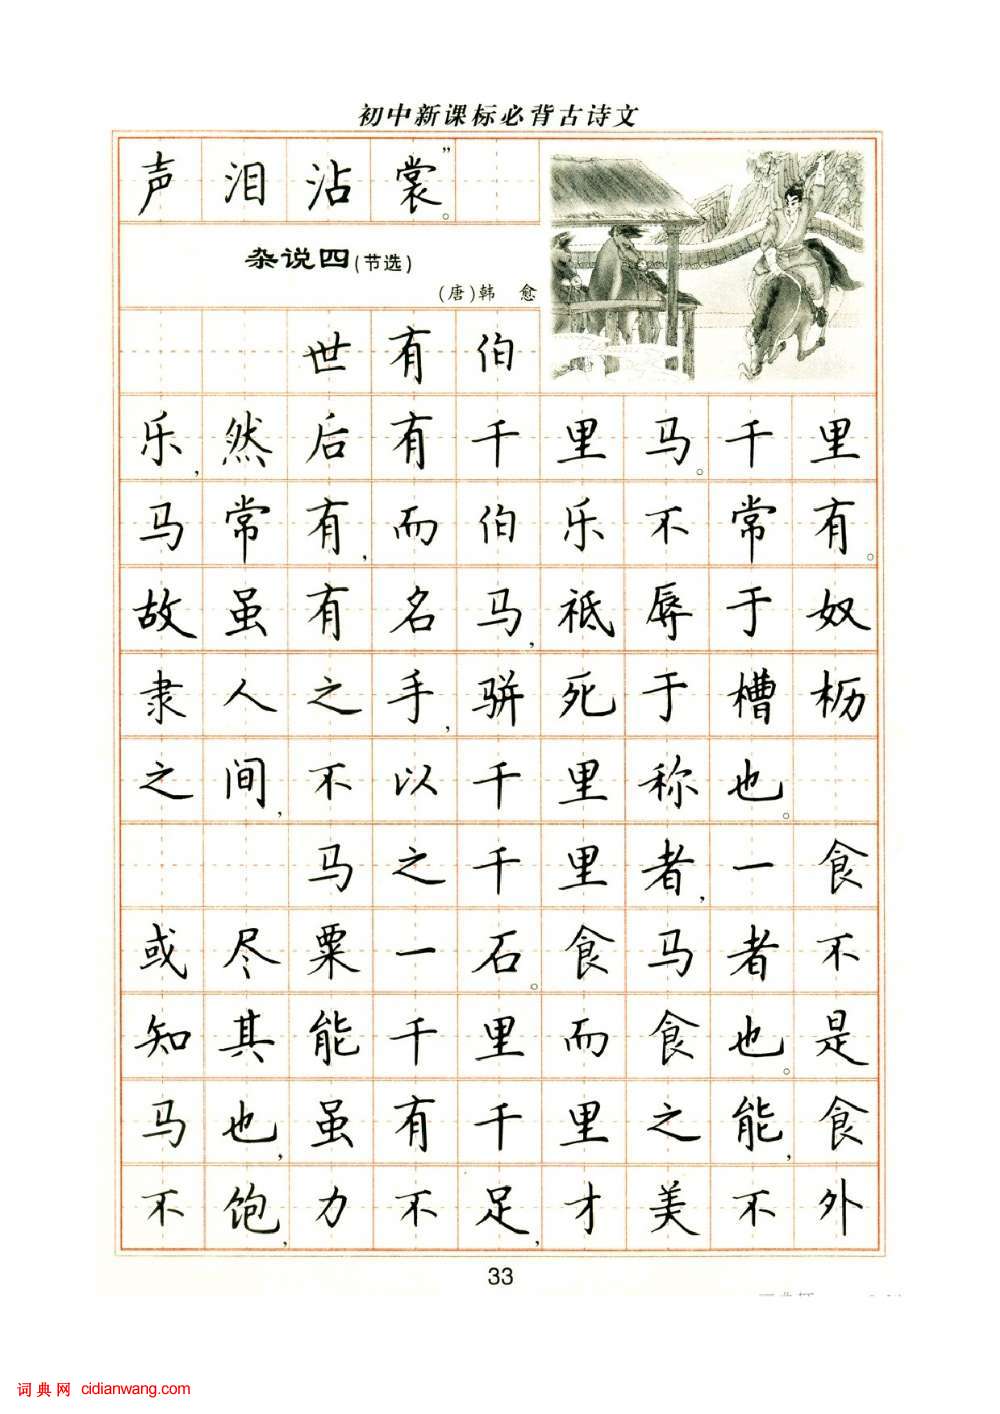 初中新课标必背古诗文
声泪沾裳”。
杂说四(节选)
(唐)韩 愈
世有伯
乐,然后有千里马。千里
马常有,而伯乐不常有。
故虽有名马,祗辱于奴
隶人之手,骈死于槽枥
之间,不以千里称也。
马之千里者,一食
或尽粟一石。食马者不
知其能千里而食也。是
马也,虽有千里之能,食
不饱,力不足,才美不外
33
词典网 cidianwang.com